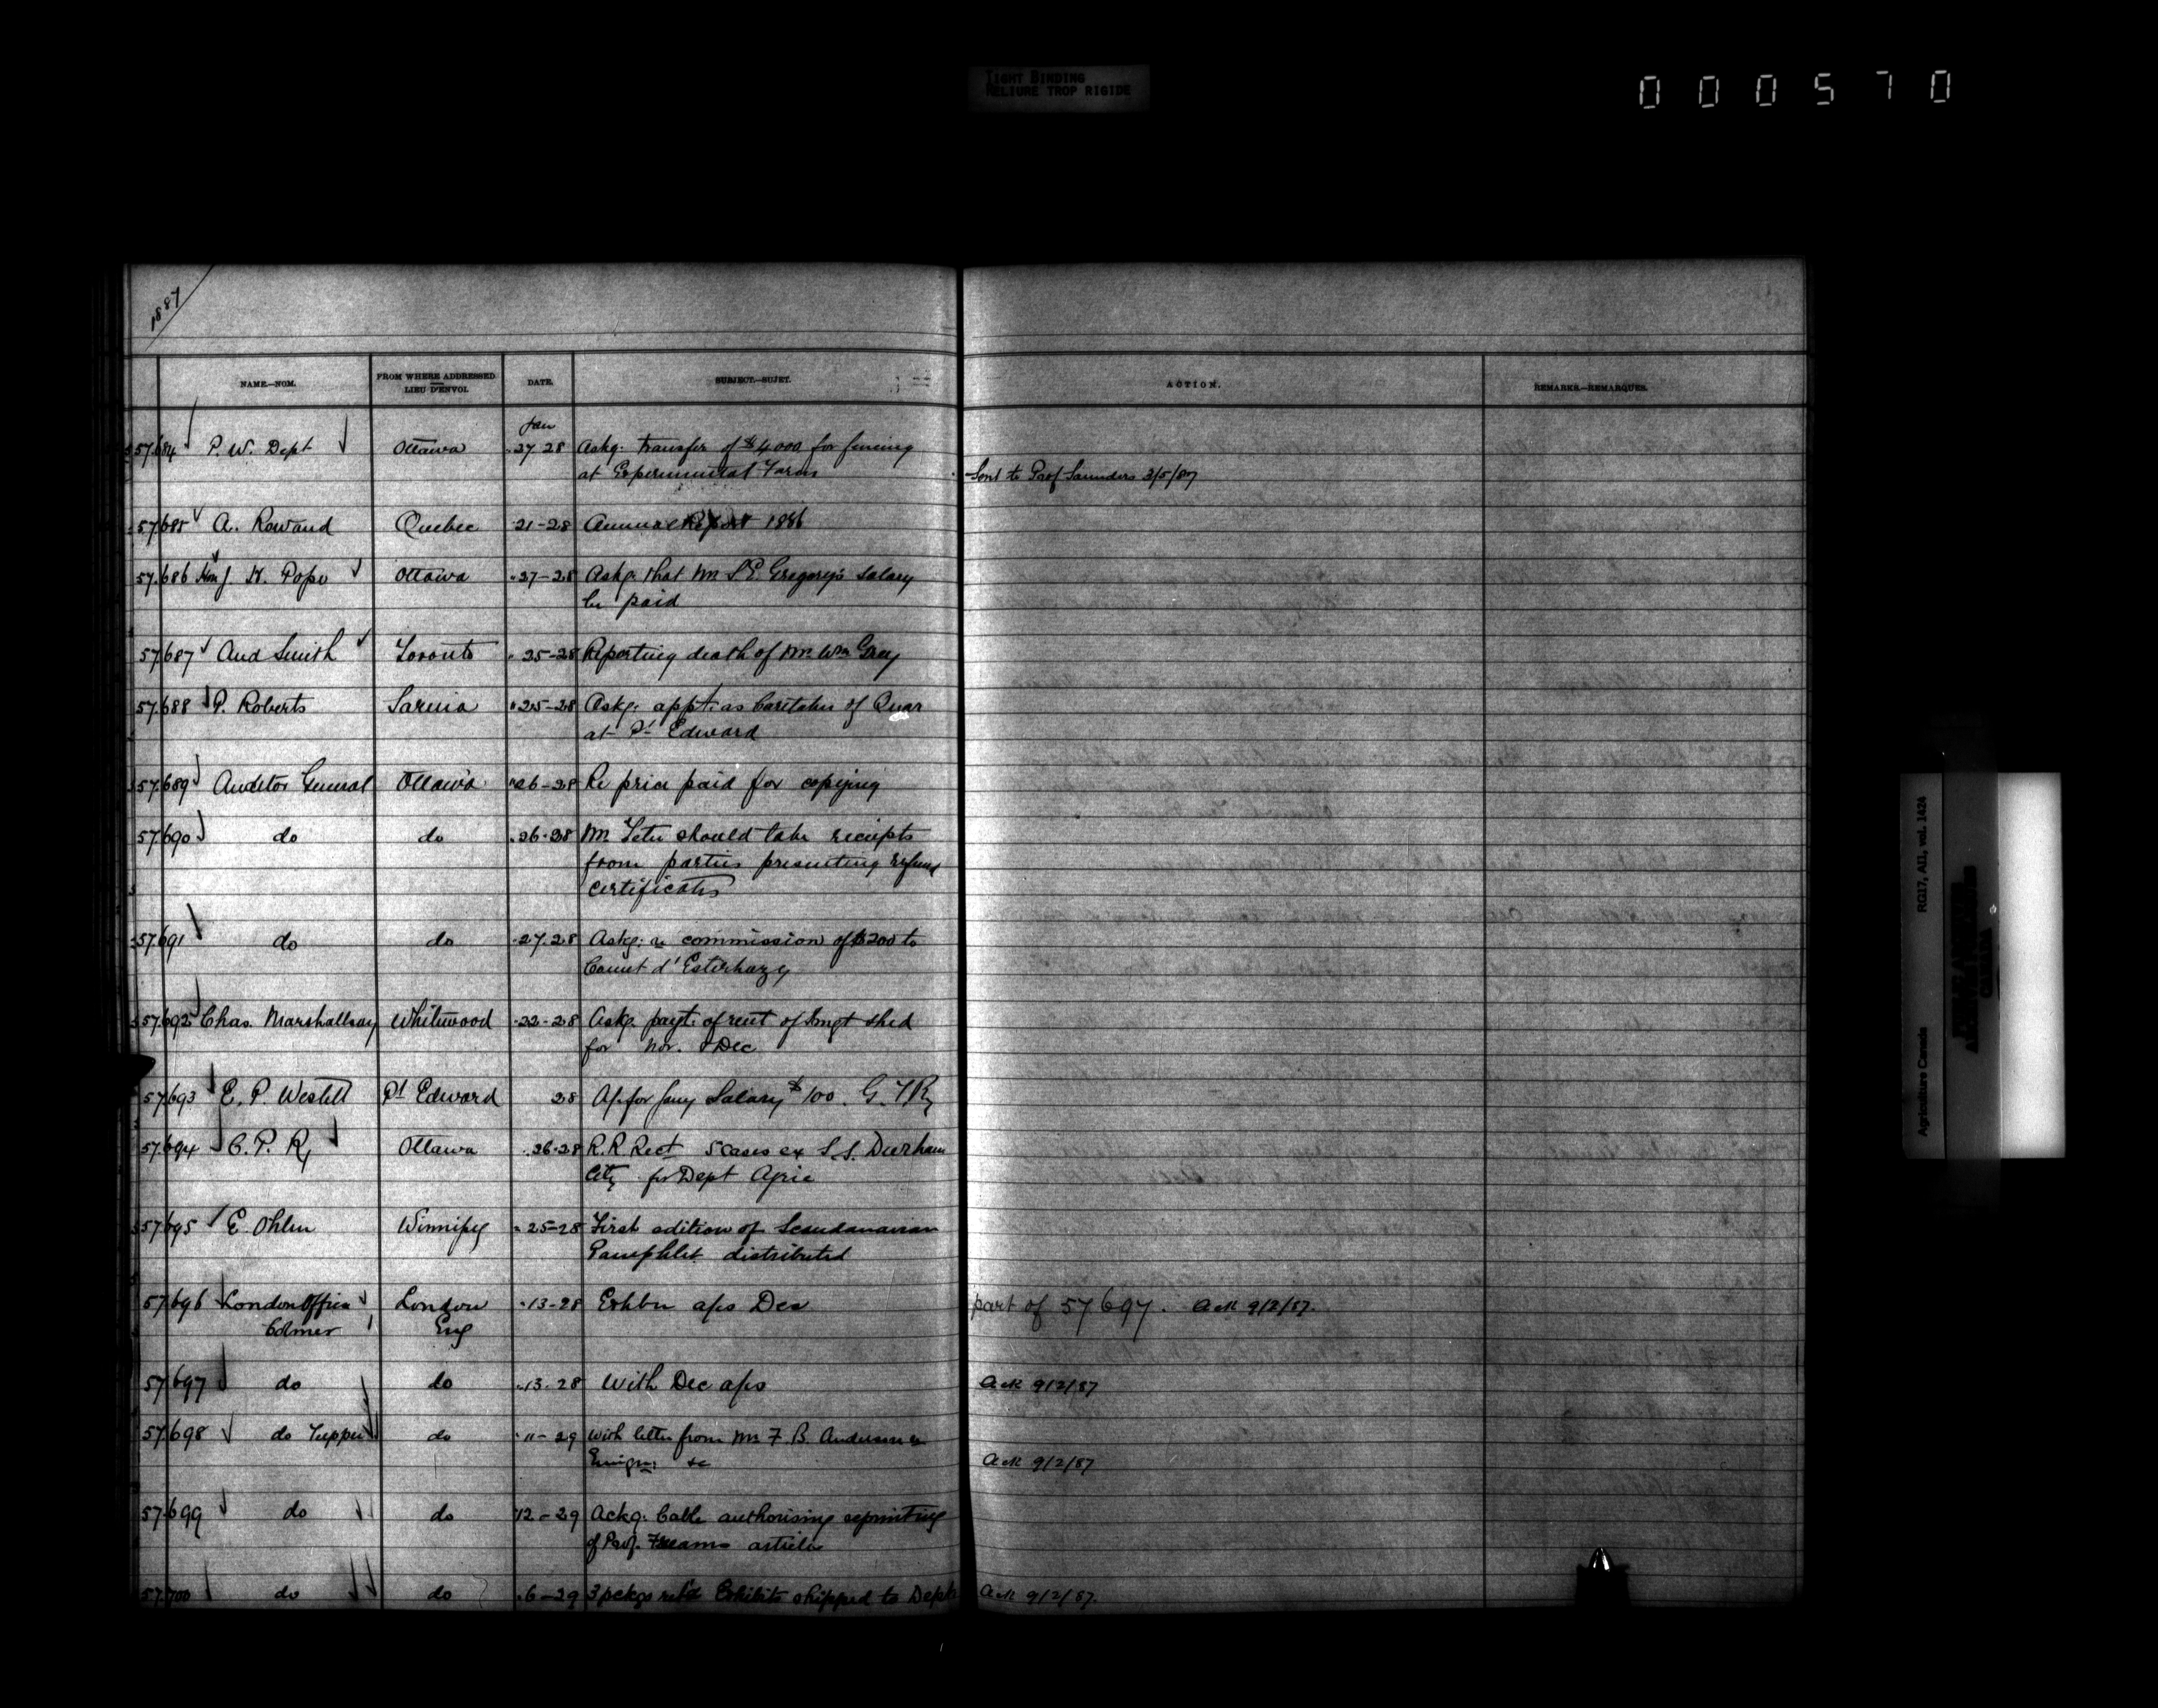 TIGHT BINDING
RELIURE TROP RIGIDE
000570
1887
NAME.—NOM.
FROM WHERE ADDRESSED
LIEU D'ENVOI.
DATE.
SUBJECT.—SUJET.
ACTION.
REMARKS.—REMARQUES.
Jan
57.684 P. W. Dept Ottawa 27 28 Askg. transfer of $4000 for fencing
at Experimental Farm
Sent to Prof Saunders 3/5/87
57.685 A. Rowand Quebec 21-28 Annual Report 1886
57.686 Hon J. H. Pope Ottawa "27-28 Askg. that Mr S E. Gregory's Salary
be paid
57.687 And Smith Toronto " 25-28 Reporting death of Mr. Wm Grey
57.688 P. Roberts Sarnia "25-28 Askg. appt. as Caretaker of Quar
at Pt Edward
57.689 Auditor General Ottawa "26-28 Re price paid for copying
57.690 do do .26.28 Mr. Tetu should take receipts
from parties presenting refund
certificates
57.691 do do .27.28 Askg. re commission of $200 to
Count d'Esterhazy
57.692 Chas. Marshallsay Whitewood .22-28 Askg. payt. of rent of Imgt shed
for Nov. & Dec
57.693 E. P. Westell Pt Edward 28 Ap. for Jany Salary $100. G. T Ry
57.694 C. P. Ry Ottawa .26.28 R. R Rect 5 cases ex S.S. Durham
City for Dept Agric
57.695 E. Ohlen Winnipeg " 25-28 First edition of Scandanavian
Pamphlet distributed
57.696 London Office London "13-28 Exhbn a/cs Dec part of 57697. Ack 9/2/87.
Colmer Eng
57.697 do do ".13.28 With Dec a/cs Ack 9/2/87
57.698 do Tupper do "11-29 with letter from Mr F. B. Anderson re
Emign: &c Ack 9/2/87
57.699 do do "12-29 Ackg. Cable authorising reprinting
of Prof. Freams article
57.700 do do .6-29 3 pckgs ret'd Exhibits shipped to Dept Ack 9/2/87.
Agriculture Canada RG17, AII, vol. 1424
CANADA